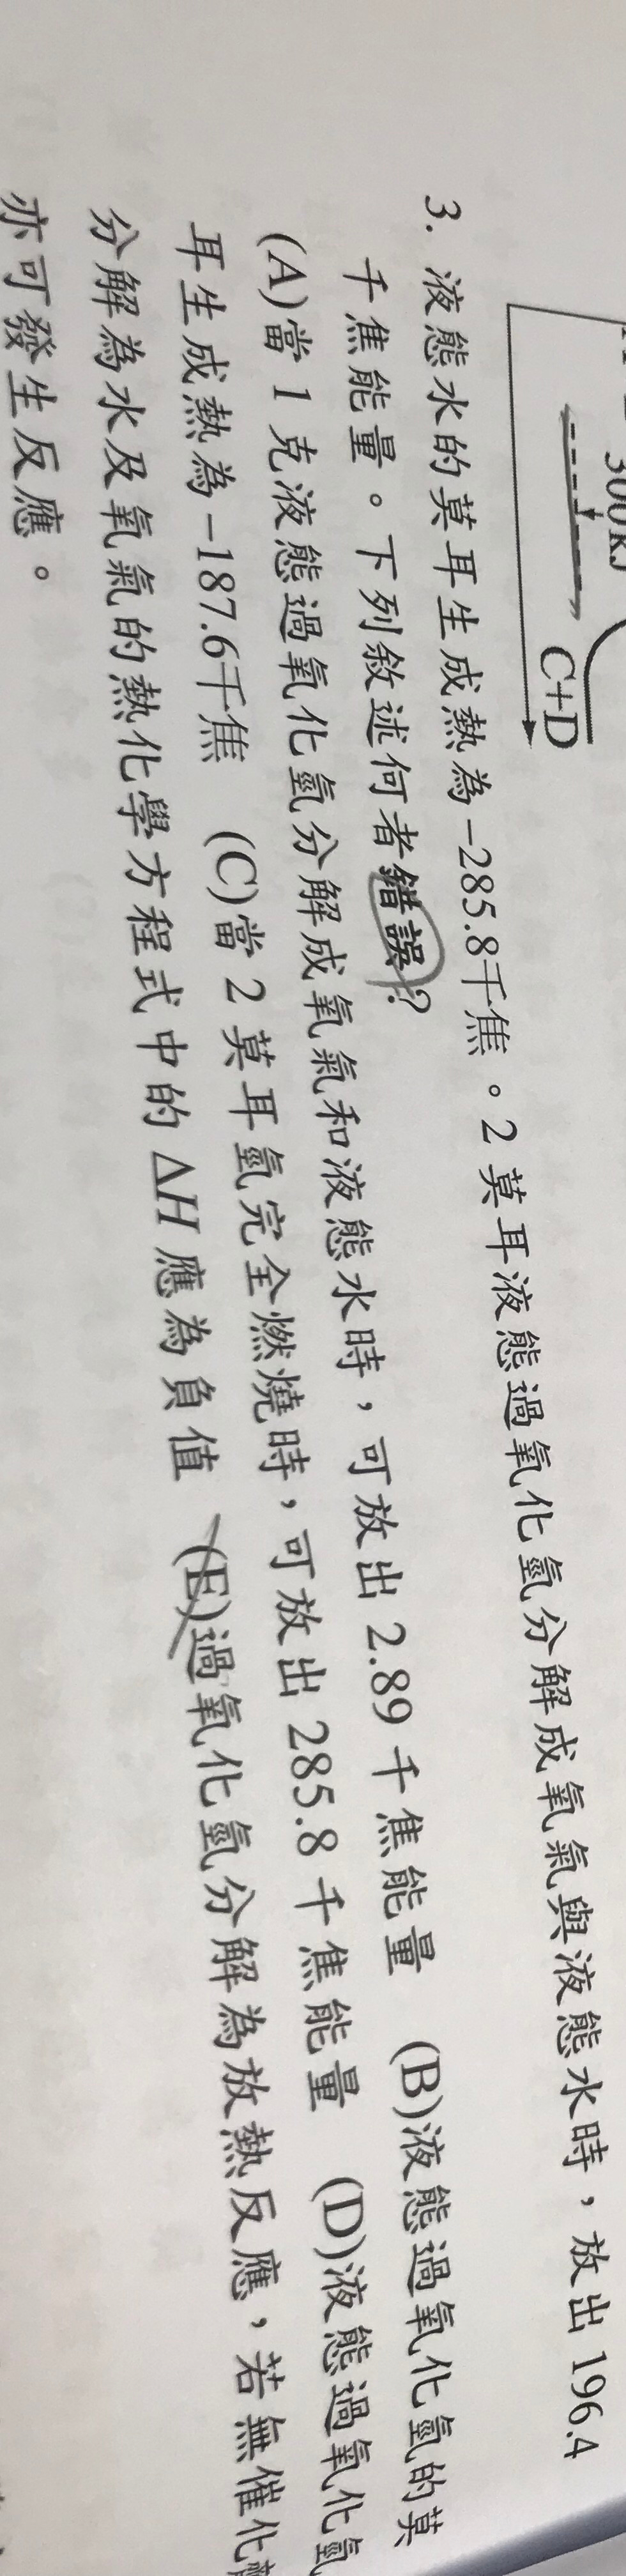 300kJ
C+D
3. 液態水的莫耳生成熱為−285.8千焦。2 莫耳液態過氧化氫分解成氧氣與液態水時，放出 196.4
千焦能量。下列敘述何者錯誤？
(A)當 1 克液態過氧化氫分解成氧氣和液態水時，可放出 2.89 千焦能量 (B)液態過氧化氫的莫
耳生成熱為−187.6千焦 (C)當 2 莫耳氫完全燃燒時，可放出 285.8 千焦能量 (D)液態過氧化氫
分解為水及氧氣的熱化學方程式中的 ΔH 應為負值 (E)過氧化氫分解為放熱反應，若無催化
亦可發生反應。